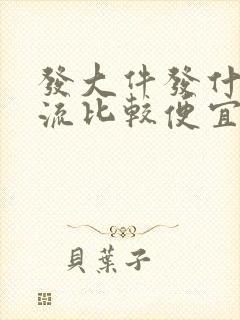 發大件發什
流比較便宜
貝葉子